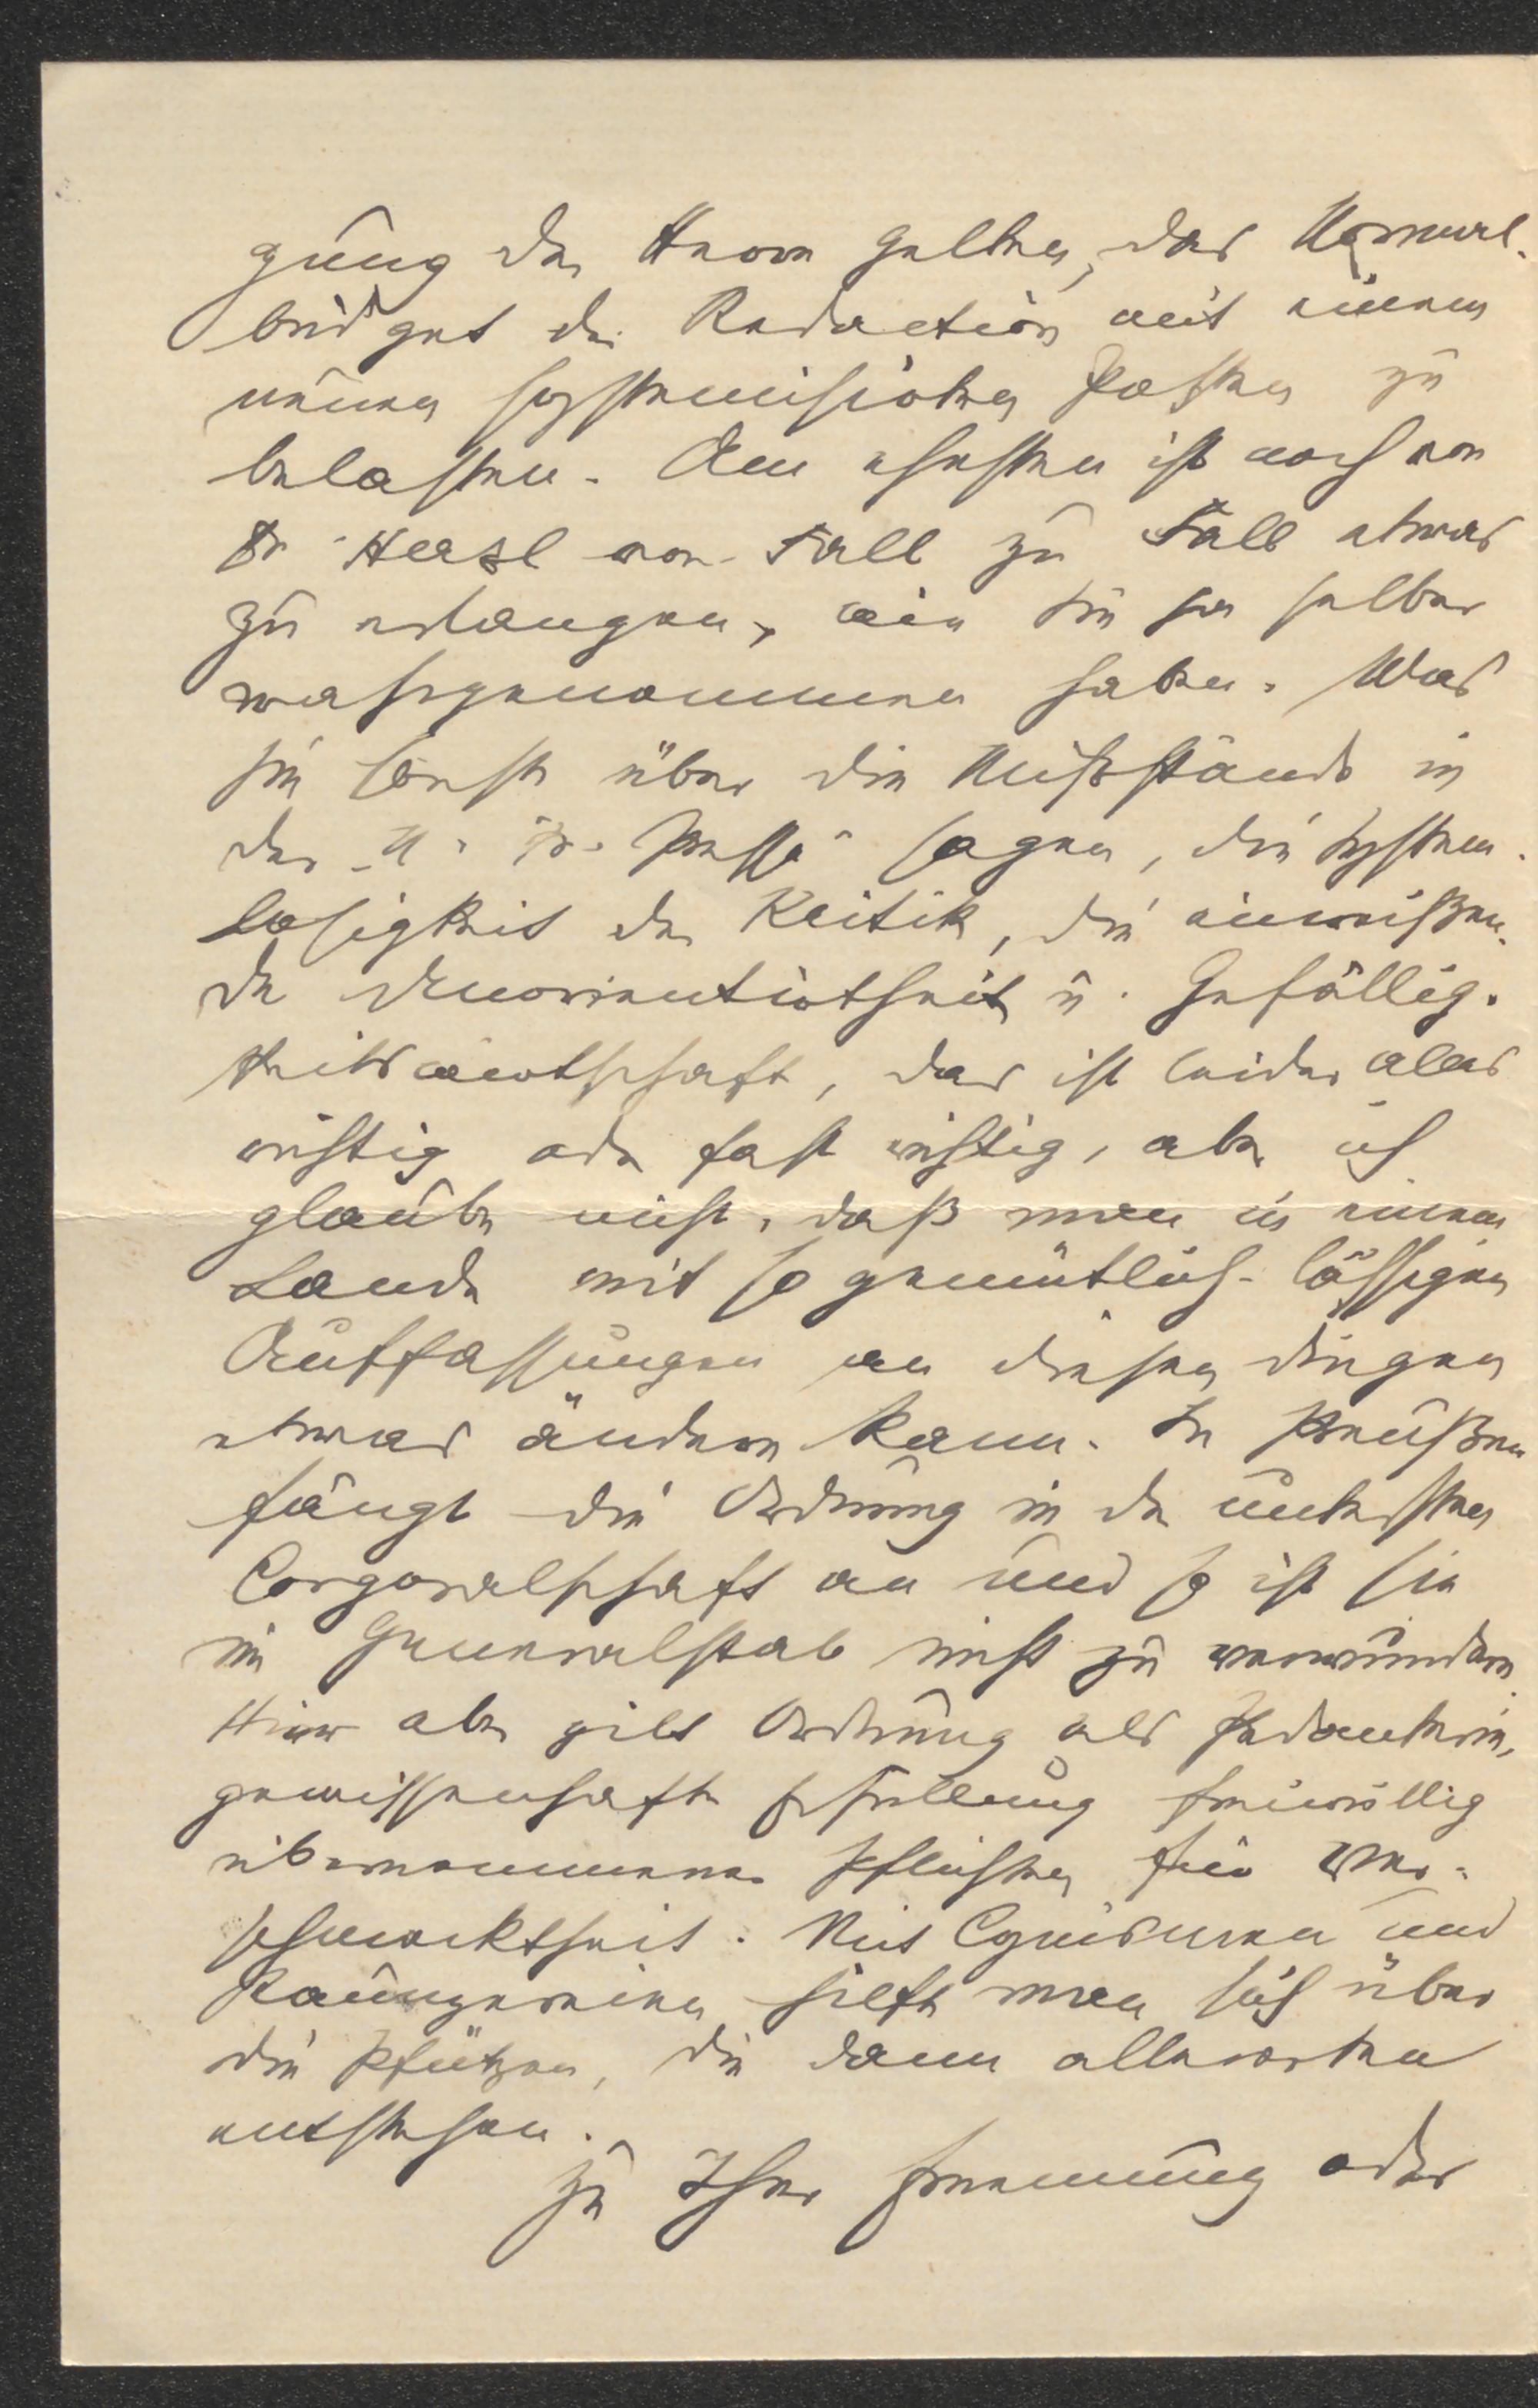 gung der Herrn Geltung, das Normal-
budget der Redaction mit einem
neuen systemisirten Posten zu
belasten. Am ehesten ist noch von
Dr Herzl von Fall zu Fall etwas
zu erlangen, wie Sie ja selber
wahrgenommen haben. Was
Sie sonst über die Mißstände in
der „N. Fr. Presse“ sagen, die System-
losigkeit der Kritik, die einreißen-
de Desorientirtheit u. Gefällig-
keitswirthschaft, das ist leider alles
richtig oder fast richtig, aber ich
glaube nicht, daß man in einem
Lande mit so gemütlich-lässigen
Auffassungen an diesen Dingen
etwas ändern kann. In Preußen
fängt die Ordnung in der untersten
Corporalschaft an und so ist sie
im Generalstab nicht zu verwundern.
Hier aber gilt Ordnung als Pedanterie,
gewissenhafte Erfüllung freiwillig
übernommener Pflichten für Ver-
schmocktheit. Mit Cynismen und
Raunzereien hilft man sich über
die Pfützen, die dann allerorten
entstehen.
Zu Ihrer Ernennung oder